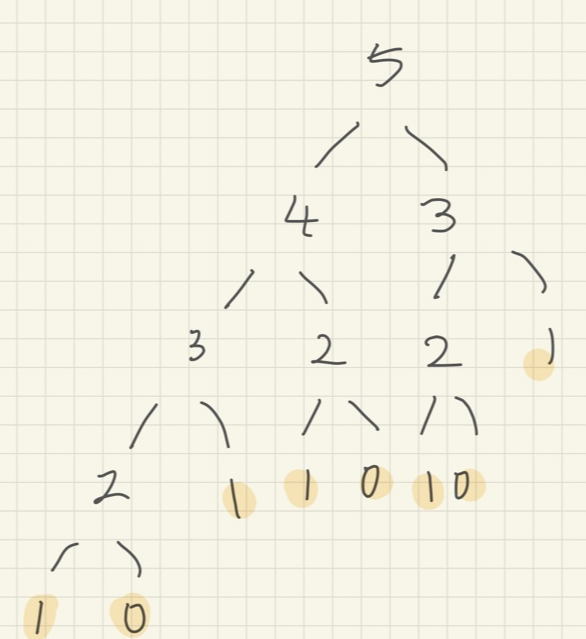 5
4 3
3 2 2 1
2 1 1 0 1 0
1 0